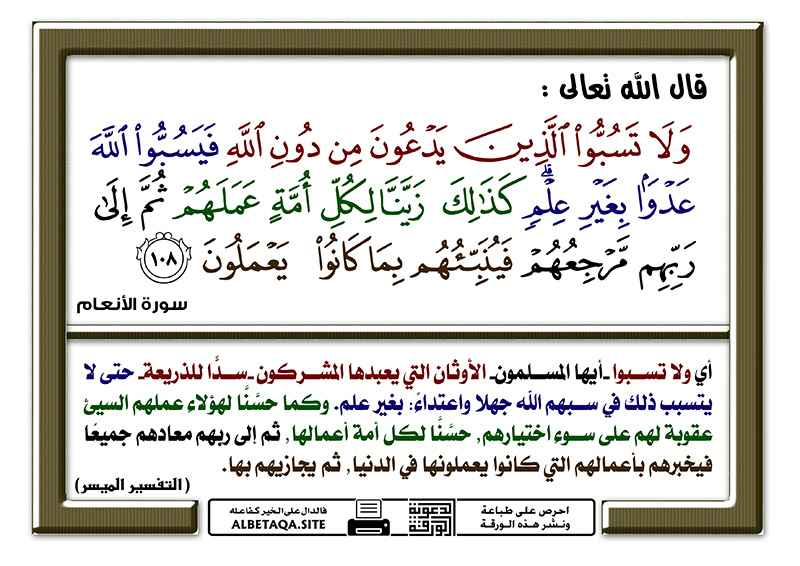 قال الله تعالى :
وَلَا تَسُبُّوا۟ ٱلَّذِينَ يَدْعُونَ مِن دُونِ ٱللَّهِ فَيَسُبُّوا۟ ٱللَّهَ
عَدْوًۢا بِغَيْرِ عِلْمٍۢ ۗ كَذَٰلِكَ زَيَّنَّا لِكُلِّ أُمَّةٍ عَمَلَهُمْ ثُمَّ إِلَىٰ
رَبِّهِم مَّرْجِعُهُمْ فَيُنَبِّئُهُم بِمَا كَانُوا۟ يَعْمَلُونَ ١٠٨
سورة الأنعام
أي ولا تسبوا ـ أيها المسلمون ـ الأوثان التي يعبدها المشركون ـ سدًّا للذريعة ـ حتى لا
يتسبب ذلك في سبهم الله جهلا واعتداءً: بغير علم. وكما حسَّنَّا لهؤلاء عملهم السيئ
عقوبة لهم على سوء اختيارهم, حسَّنَّا لكل أمة أعمالها, ثم إلى ربهم معادهم جميعًا
فيخبرهم بأعمالهم التي كانوا يعملونها في الدنيا, ثم يجازيهم بها.
(التفسير الميسر)
احرص على طباعة
ونشر هذه الورقة
دعوية
الورقة
فالدال على الخير كفاعله
ALBETAQA.SITE